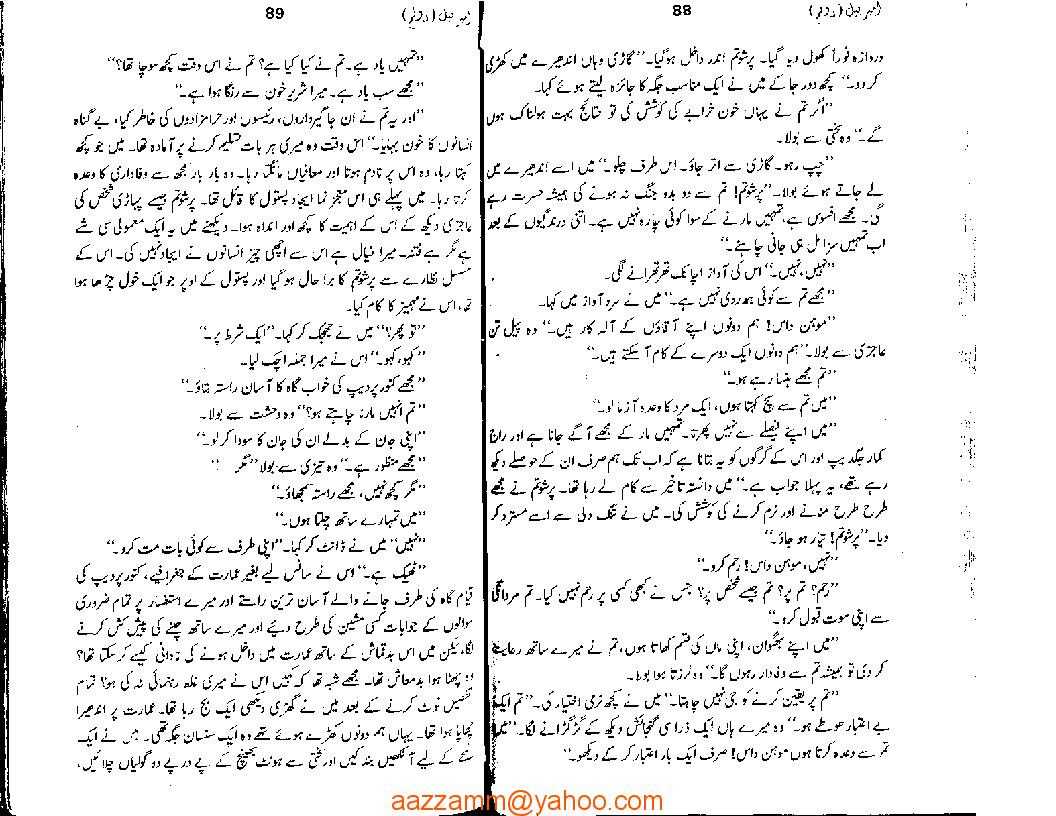 امبر بیل (دوئم)
88
دروازہ فوراً کھول دیا گیا۔ پرشوتم اندر داخل ہوگیا۔ "گاڑی وہاں اندھیرے میں کھڑی
کردو۔" کچھ دور جا کے میں نے ایک مناسب جگہ کا جائزہ لیتے ہوئے کہا۔
"اگر تم نے یہاں خون خرابے کی کوشش کی تو نتائج بہت ہولناک ہوں
گے۔" وہ سختی سے بولا۔
"چپ رہو۔ گاڑی سے اتر جاؤ۔ اس طرف چلو۔" میں اسے اندھیرے میں
لے جاتے ہوئے بولا۔ "پرشوتم! تم سے دو بدو جنگ نہ ہونے کی ہمیشہ حسرت رہے
گی۔ مجھے افسوس ہے، تمہیں مارنے کے سوا کوئی چارہ نہیں ہے۔ اتنی درندگیوں کے بعد
اب تمہیں سزا مل ہی جانی چاہئے۔"
"نہیں، نہیں۔" اس کی آواز اچانک تھرتھرانے لگی۔
"مجھے تم سے کوئی ہمدردی نہیں ہے۔" میں نے سرد آواز میں کہا۔
"موہن داس! ہم دونوں اپنے آقاؤں کے آلہ کار ہیں۔" وہ پیل تن
عاجزی سے بولا۔ "ہم دونوں ایک دوسرے کے کام آسکتے ہیں۔"
"تم مجھے ہنسا رہے ہو۔"
"میں تم سے سچ کہتا ہوں، ایک مرد کا وعدہ آزما لو۔"
"میں اپنے فیصلے سے نہیں پھرتا۔ تمہیں مار کے مجھے آگے جانا ہے اور راج
کمار جگدیپ اور اس کے گرگوں کو یہ بتانا ہے کہ اب تک ہم صرف ان کے حوصلے دیکھ
رہے تھے، یہ پہلا جواب ہے۔" میں دانستہ تاخیر سے کام لے رہا تھا۔ پرشوتم نے مجھے
طرح طرح منانے اور نرم کرنے کی کوشش کی۔ میں نے تنگ دلی سے اسے مسترد کر
دیا۔ "پرشوتم! تیار ہو جاؤ۔"
"نہیں، موہن داس! رحم کرو۔"
"رحم؟ تم پر؟ تم جیسے شخص پر؟ جس نے کبھی کسی پر رحم نہیں کیا۔ تم مردانگی
سے اپنی موت قبول کرو۔"
"میں اپنے بھگوان، اپنی ماں کی قسم کھاتا ہوں، تم نے میرے ساتھ رعایت
کر دی تو ہمیشہ تم سے وفادار رہوں گا۔" وہ لرزتا ہوا بولا۔
"تم پر یقین کرنے کو جی نہیں چاہتا۔" میں نے کچھ نرمی اختیار کی۔ "تم ایک
بے اعتبار طوطے ہو۔" وہ میرے ہاں ایک ذرا سی گنجائش دیکھ کے گڑگڑانے لگا۔ "میں
تم سے وعدہ کرتا ہوں موہن داس! صرف ایک بار اعتبار کر کے دیکھو۔"
امبر بیل (دوئم)
89
"تمہیں یاد ہے۔ تم نے کیا کیا ہے؟ تم نے اس وقت کچھ سوچا تھا؟"
"مجھے سب یاد ہے۔ میرا شریر خون سے رنگا ہوا ہے۔"
"اور یہ تم نے ان جاگیرداروں، رئیسوں اور حرامزادوں کی خاطر کیا، بے گناہ
انسانوں کا خون بہایا۔" اس وقت وہ میری ہر بات تسلیم کرنے پر آمادہ تھا۔ میں جو کچھ
کہتا رہا، وہ اس پر نادم ہوتا اور معافیاں مانگتا رہا۔ وہ بار بار مجھ سے وفاداری کا وعدہ
کرتا رہا۔ میں پہلے ہی اس معجز نما ایجاد پستول کا قائل تھا۔ پرشوتم جیسے پہاڑی شخص کی
عاجزی دیکھ کے اس کے اہمیت کا کچھ اور اندازہ ہوا۔ دیکھنے میں یہ ایک معمولی سی شے
ہے مگر ہے فتنہ۔ میرا خیال ہے اس سے اچھی چیز انسانوں نے ایجاد نہیں کی۔ اس کے
مسلسل نظارے سے پرشوتم کا برا حال ہو گیا اور پستول کے اوپر جو ایک خول چڑھا ہوا
تھا، اس نے مہمیز کا کام کیا۔
"تو پھر؟" میں نے جھجک کر کہا۔ "ایک شرط پر۔"
"کہو، کہو۔" اس نے میرا جملہ اچک لیا۔
"مجھے کنور پردیپ کی خواب گاہ کا آسان راستہ بتاؤ۔"
"تم انہیں مارنا چاہتے ہو؟" وہ دہشت سے بولا۔
"اپنی جان کے بدلے ان کی جان کا سودا کر لو۔"
"مجھے منظور ہے۔" وہ تیزی سے بولا "مگر"
"مگر کچھ نہیں، مجھے راستہ سمجھاؤ۔"
"میں تمہارے ساتھ چلتا ہوں۔"
"نہیں" میں نے ڈانٹ کر کہا۔ "اپنی طرف سے کوئی بات مت کرو۔"
"ٹھیک ہے۔" اس نے سانس لیے بغیر عمارت کے جغرافیے، کنور پردیپ کی
قیام گاہ کی طرف جانے والے آسان ترین راستے اور میرے استفسار پر تمام ضروری
سوالوں کے جوابات کسی مشین کی طرح دیئے اور میرے ساتھ چلنے کی پیش کش کرنے
لگا، لیکن میں اس بدقماش کے ساتھ عمارت میں داخل ہونے کی نادانی کیسے کر سکتا تھا؟
وہ چھٹا ہوا بدمعاش تھا۔ مجھے شبہ تھا کہ کہیں اس نے میری غلط رہنمائی نہ کی ہو؟ تمام
تفصیل نوٹ کرنے کے بعد میں نے گھڑی دیکھی ایک بج رہا تھا۔ عمارت پر اندھیرا
چھایا ہوا تھا۔ یہاں ہم دونوں کھڑے ہوئے تھے وہ ایک سنسان جگہ تھی۔ میں نے ایک
لمحے کے لیے آنکھیں بند کیں اور سختی سے ہونٹ بھینچ کے پے در پے دو گولیاں چلائیں،
aazzamm@yahoo.com